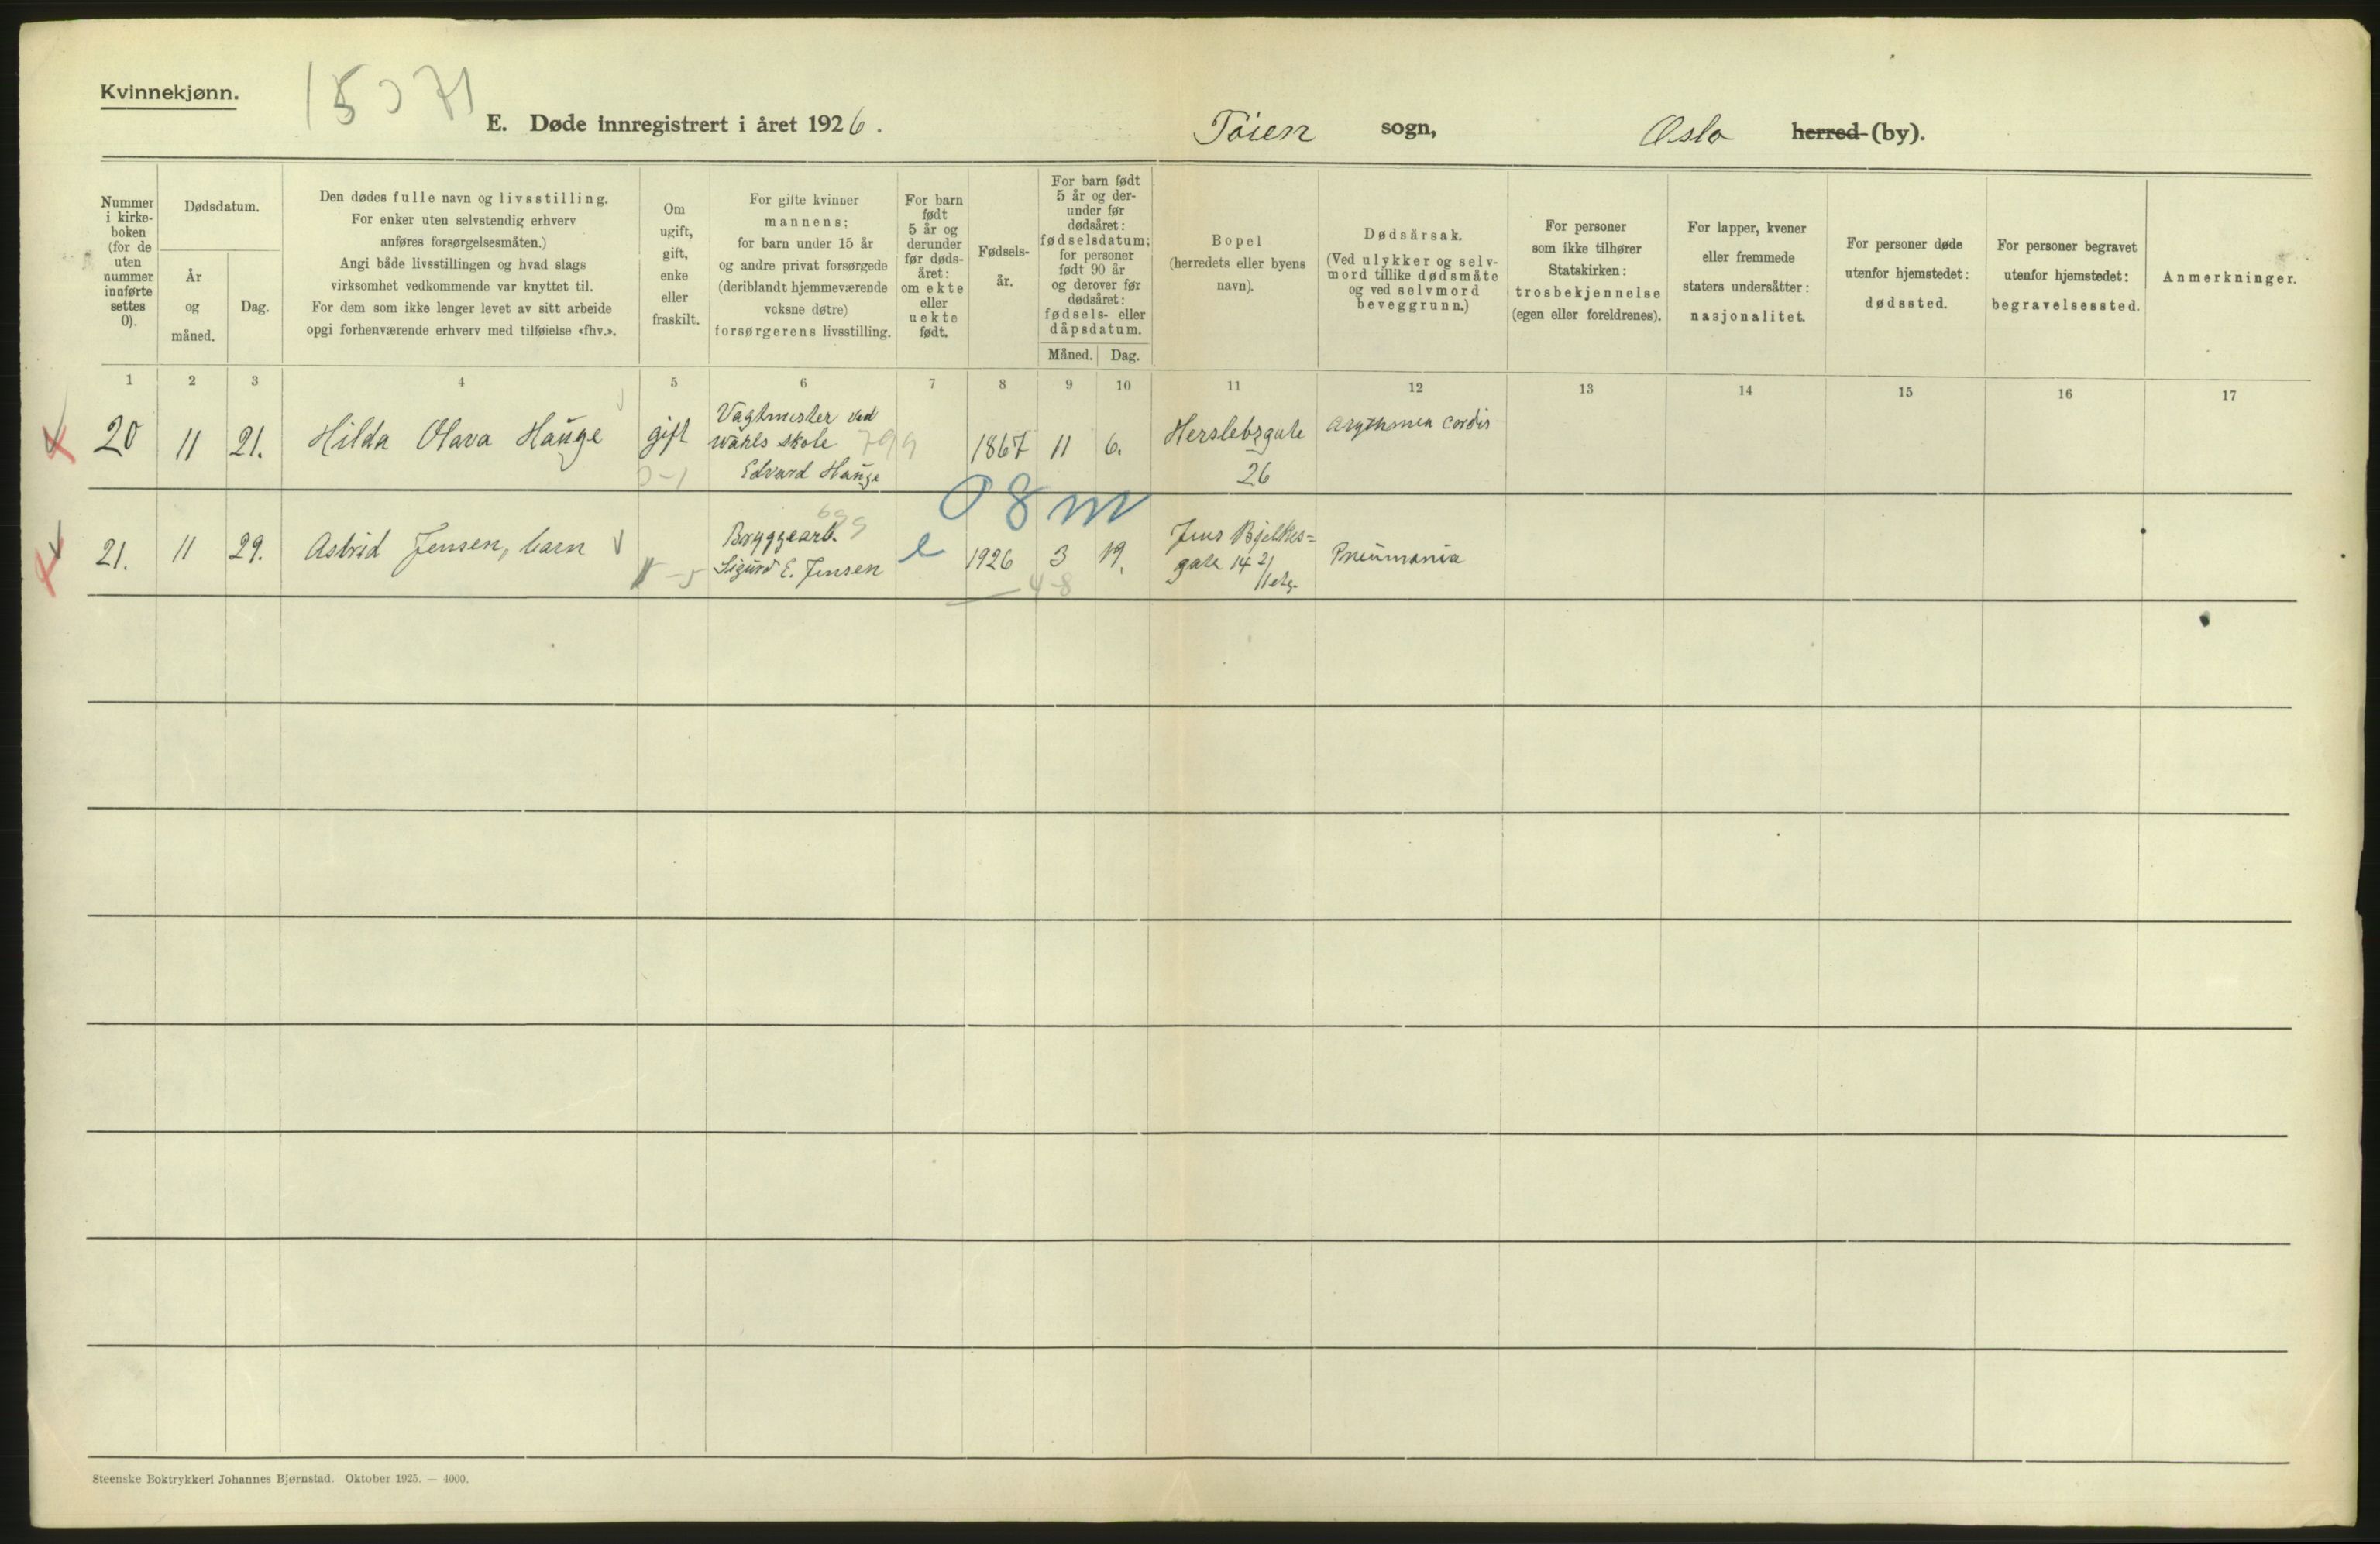 Kvinnekjønn.
15071
E. Døde innregistrert i året 1926.
Tøien sogn,
Oslo herred (by).
Nummer i kirke-boken (for de uten nummer innførte settes 0).
Dødsdatum.
År og måned.
Dag.
Den dødes fulle navn og livsstilling.
For enker uten selvstendig erhverv
anføres forsørgelsesmåten.)
Angi både livsstillingen og hvad slags
virksomhet vedkommende var knyttet til.
For dem som ikke lenger levet av sitt arbeide
opgi forhenværende erhverv med tilføielse «fhv.».
Om ugift, gift, enke eller fraskilt.
For gifte kvinner
mannens;
for barn under 15 år
og andre privat forsørgede
(deriblandt hjemmeværende
voksne døtre)
forsørgerens livsstilling.
For barn født 5 år og derunder før døds-året: om ekte eller uekte født.
Fødsels-år.
For barn født 5 år og der-under før dødsåret: fødselsdatum; for personer født 90 år og derover før dødsåret: fødsels- eller dåpsdatum.
Måned.
Dag.
Bopel
(herredets eller byens
navn).
Dødsårsak.
(Ved ulykker og selv-
mord tillike dødsmåte
og ved selvmord
beveggrunn.)
For personer
som ikke tilhører
Statskirken:
trosbekjennelse
(egen eller foreldrenes).
For lapper, kvener
eller fremmede
staters undersåtter:
nasjonalitet.
For personer døde
utenfor hjemstedet:
dødssted.
For personer begravet
utenfor hjemstedet:
begravelsessted.
Anmerkninger.
1 2 3 4 5 6 7 8 9 10 11 12 13 14 15 16 17
20 11 21. Hilda Olava Hauge gift
Vagtmester ved
Wahls skole 799
Edvard Hauge
0-1
1867 11 6.
Herslebsgate
26
Arythmia cordis
08 m
21. 11 29. Astrid Jensen, barn
699
Bryggearb.
Sigurd E. Jensen
-5
e 1926 3 19.
4-8
Jens Bjelkes=
gate 14 2/
11 etg.
Pneumonia
Steenske Boktrykkeri Johannes Bjørnstad. Oktober 1925. — 4000.